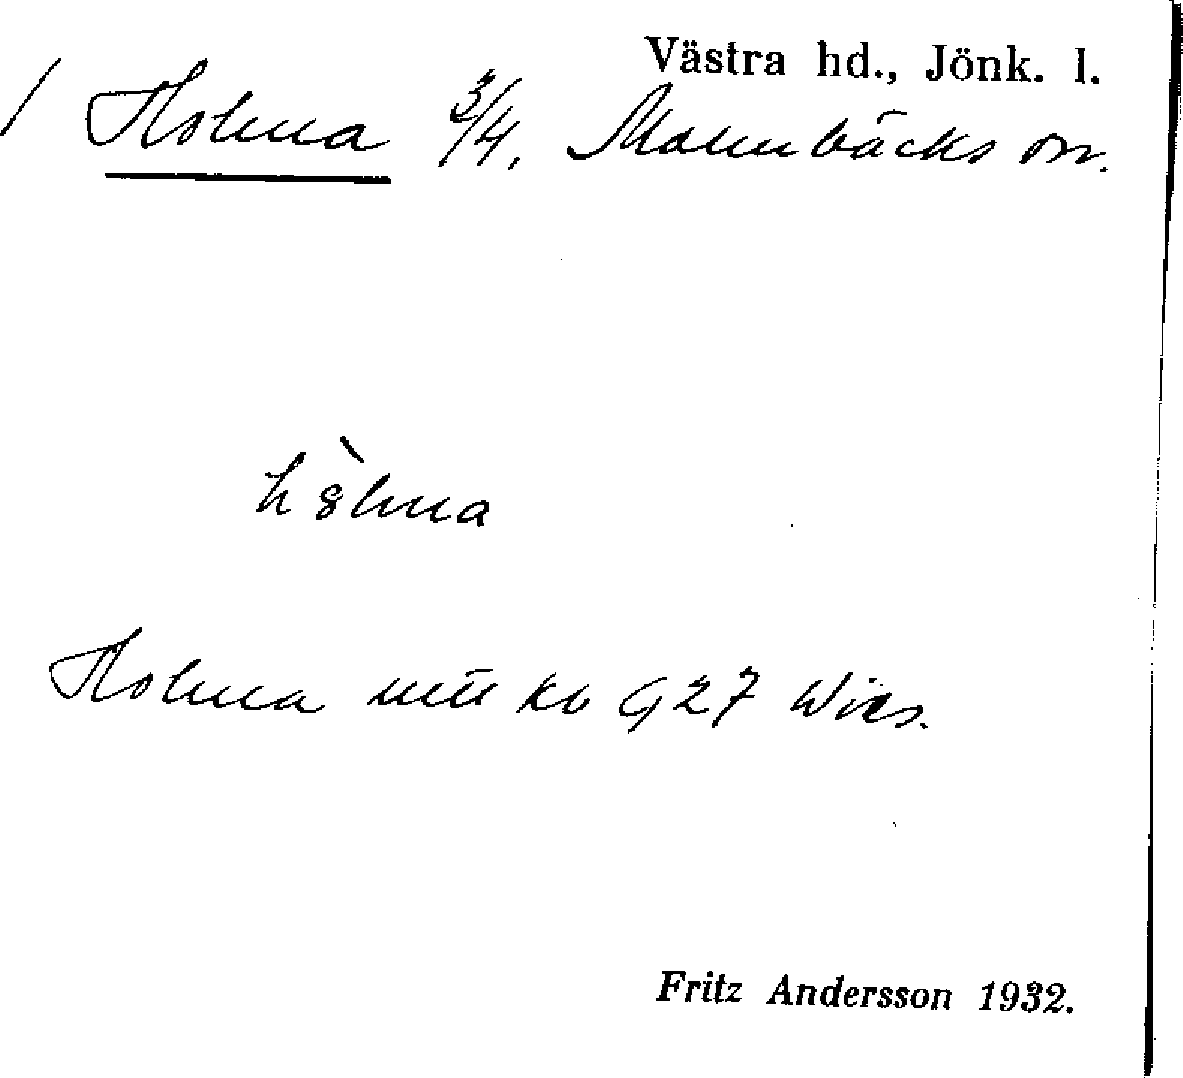 Västra hd., Jönk. l.
/ Holma 3/4, Malmbäcks sn.
hòlma
Holma G 27 Wies.
Fritz Andersson 1932.